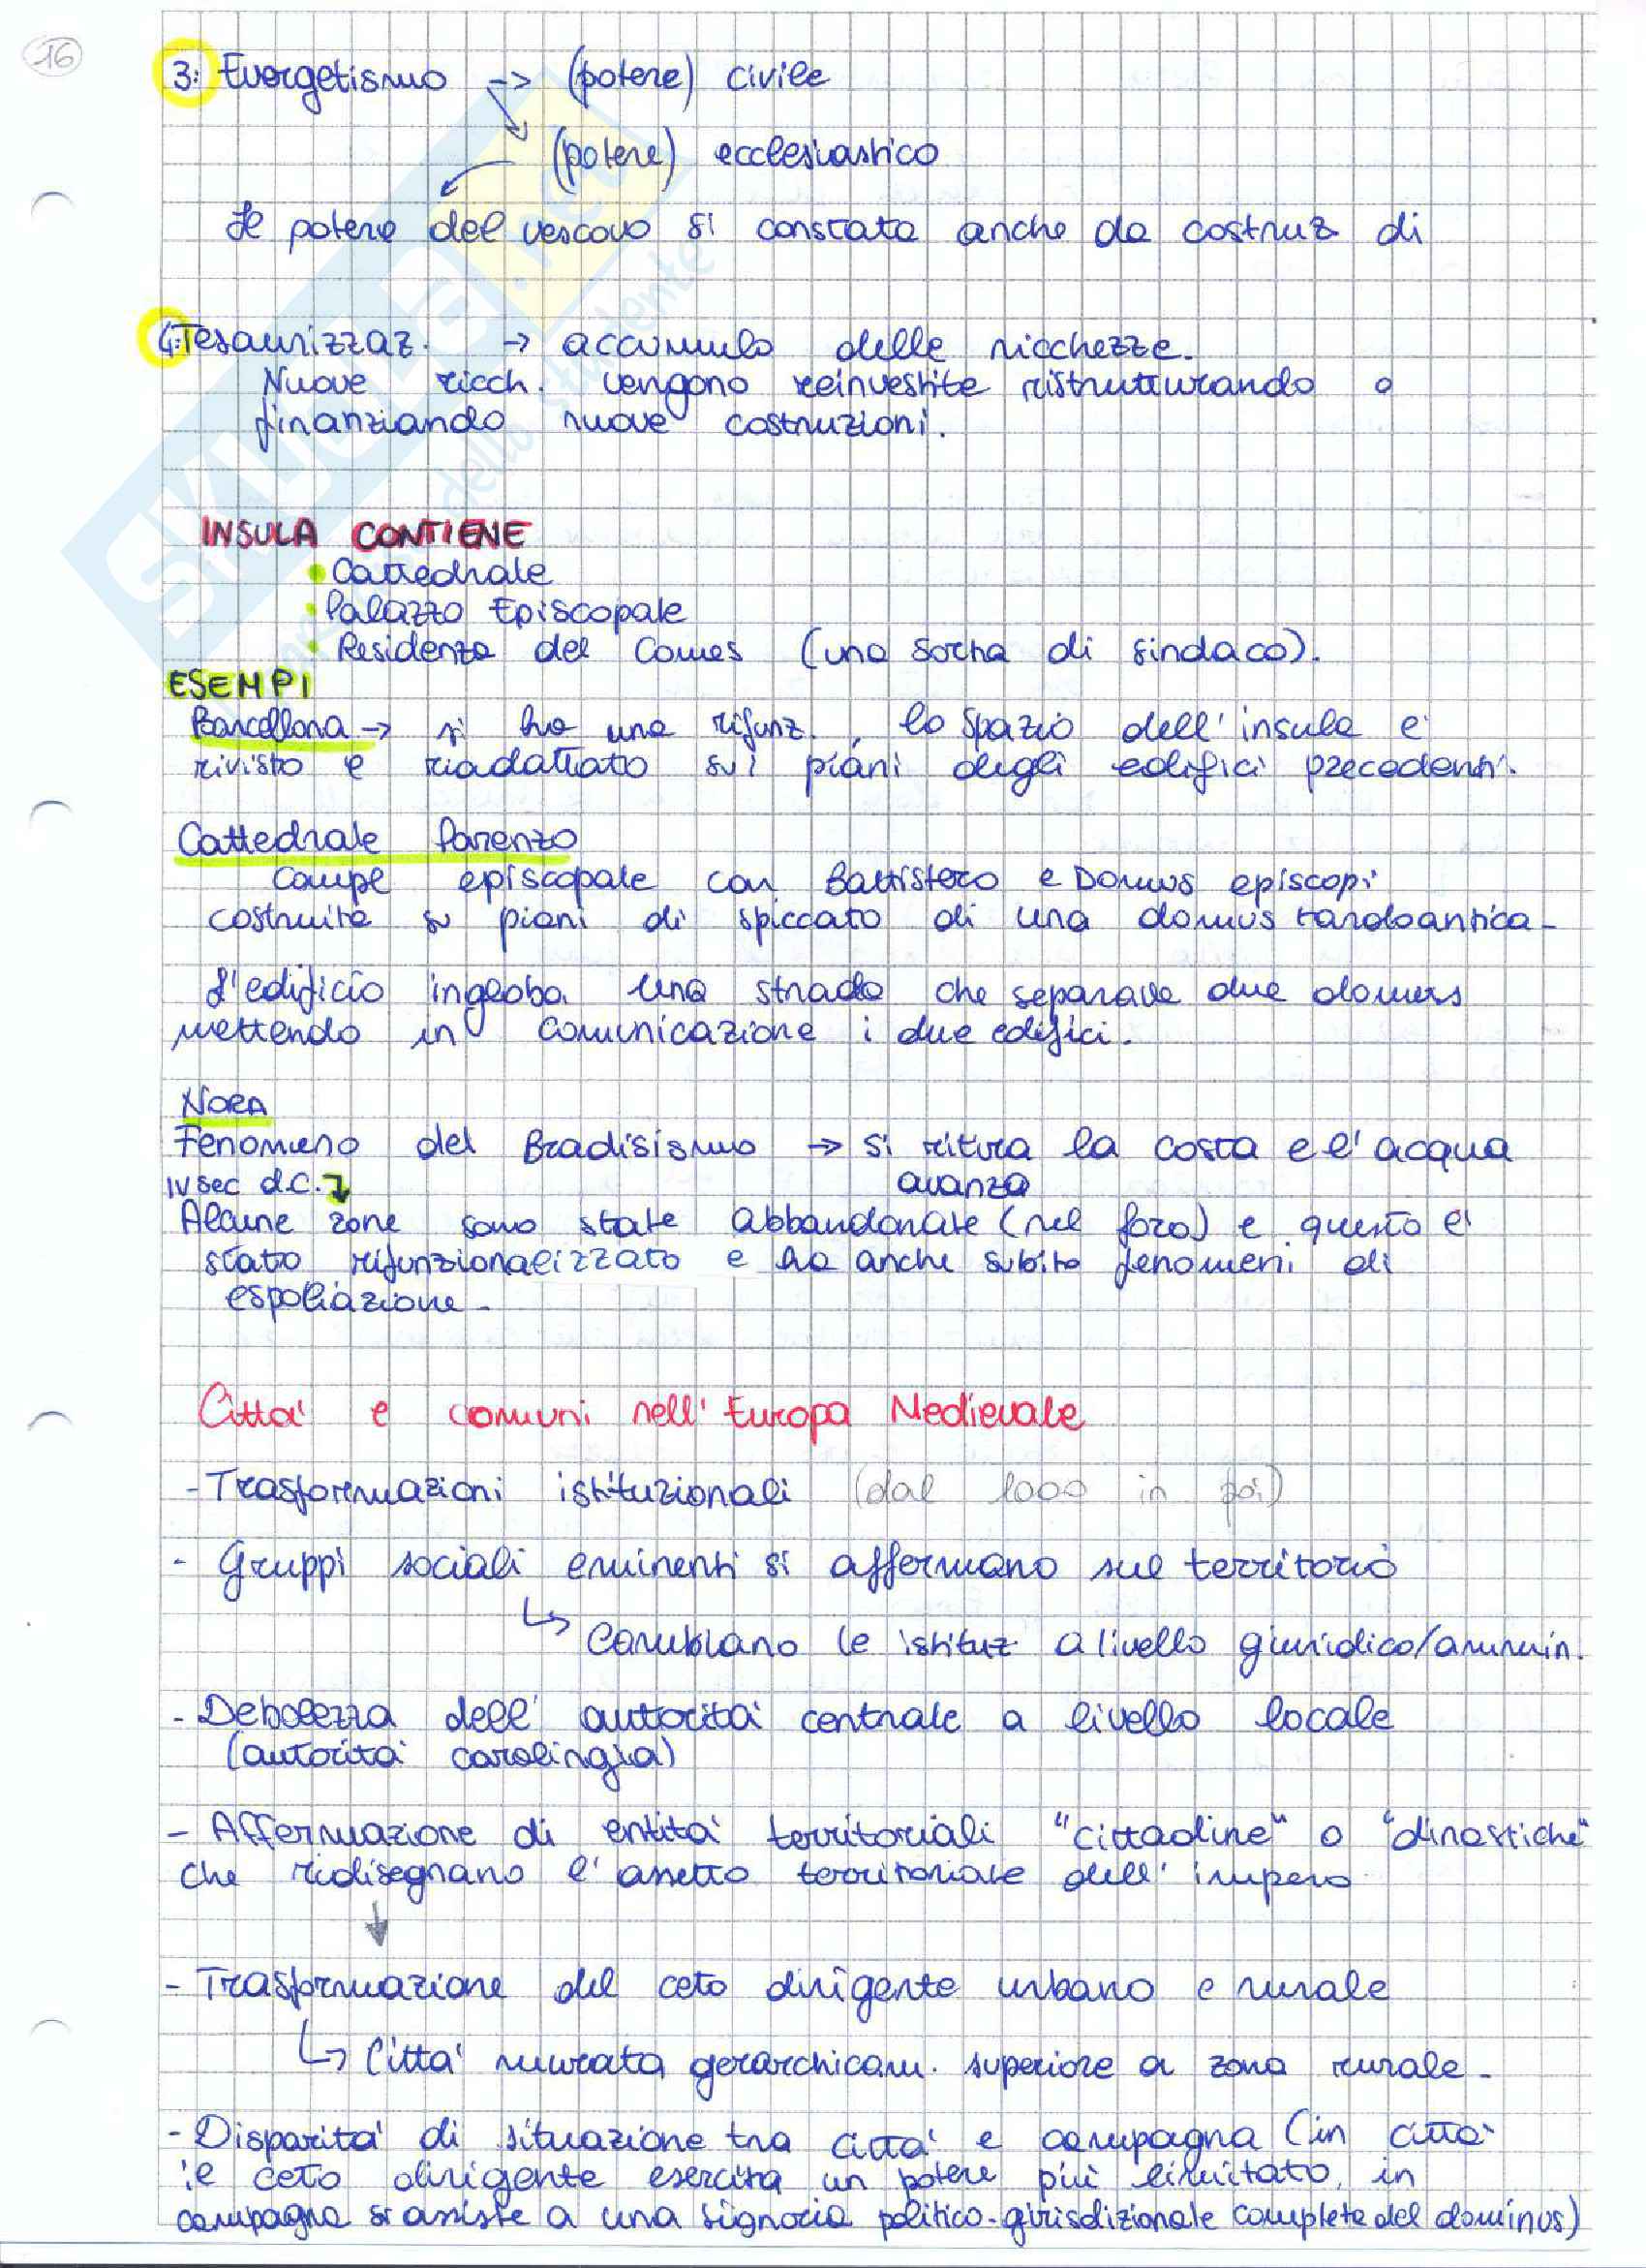 16
3: Evergetismo -> (potere) civile
(potere) ecclesiastico
Il potere del vescovo si constata anche da costruz di
4: Tesaurizzaz. → accumulo delle ricchezze.
Nuove ricch. vengono reinvestite ristrutturando o
finanziando nuove costruzioni.
INSULA CONTIENE
• Cattedrale
• Palazzo Episcopale
• Residenza del Comes (una sorta di sindaco).
ESEMPI
Barcellona → si ha una rifunz., lo spazio dell'insula e'
rivisto e riadattato sui piani degli edifici precedenti.
Cattedrale Parenzo
Compl episcopale con Battistero e Domus episcopi
costruita su piani di spiccato di una domus tardoantica-
L'edificio ingloba una strada che separava due domus
mettendo in comunicazione i due edifici.
NORA
Fenomeno del Bradisismo → si ritira la costa e l'acqua
avanza
IV sec d.C.
Alcune zone sono state abbandonate (nel foro) e questo e'
stato rifunzionalizzato e ha anche subito fenomeni di
espoliazione-
Citta' e comuni nell'Europa Medievale
- Trasformazioni istituzionali (dal 1000 in poi)
- Gruppi sociali eminenti si affermano sul territorio
Cambiano le istituz. a livello giuridico/ammin.
- Debolezza dell'autorita' centrale a livello locale
(autorita' carolingia)
- Affermazione di entita' territoriali "cittadine" o "dinastiche"
che ridisegnano l'assetto territoriale dell'impero
- Trasformazione del ceto dirigente urbano e rurale
Citta' murata gerarchicam. superiore a zona rurale-
- Disparita' di situazione tra citta' e campagna (in citta'
il ceto dirigente esercita un potere più limitato, in
campagna si assiste a una signoria politico-giurisdizionale completa del dominus)
SKUOLA.net
dello studente